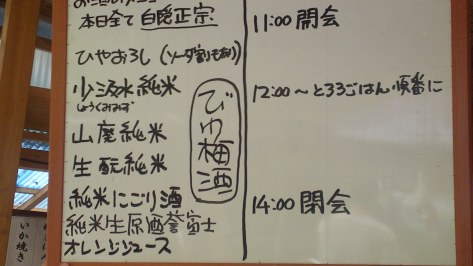 本日全て 白隠正宗
ひやおろし (ソーダ割もあり)
少汲水純米
しょうくみみず
山廃純米
生酛純米
純米にごり酒
純米生原酒誉富士
オレンジジュース
びわ梅酒
11:00 開会
12:00〜とろろごはん順番に
14:00 閉会
いか焼き